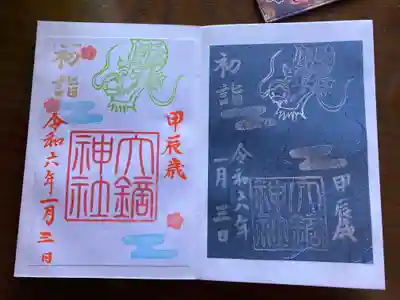 甲辰歳
大鏑
神社
初詣
令和六年一月三日
甲辰歳
大鏑
神社
初詣
令和六年
一月三日